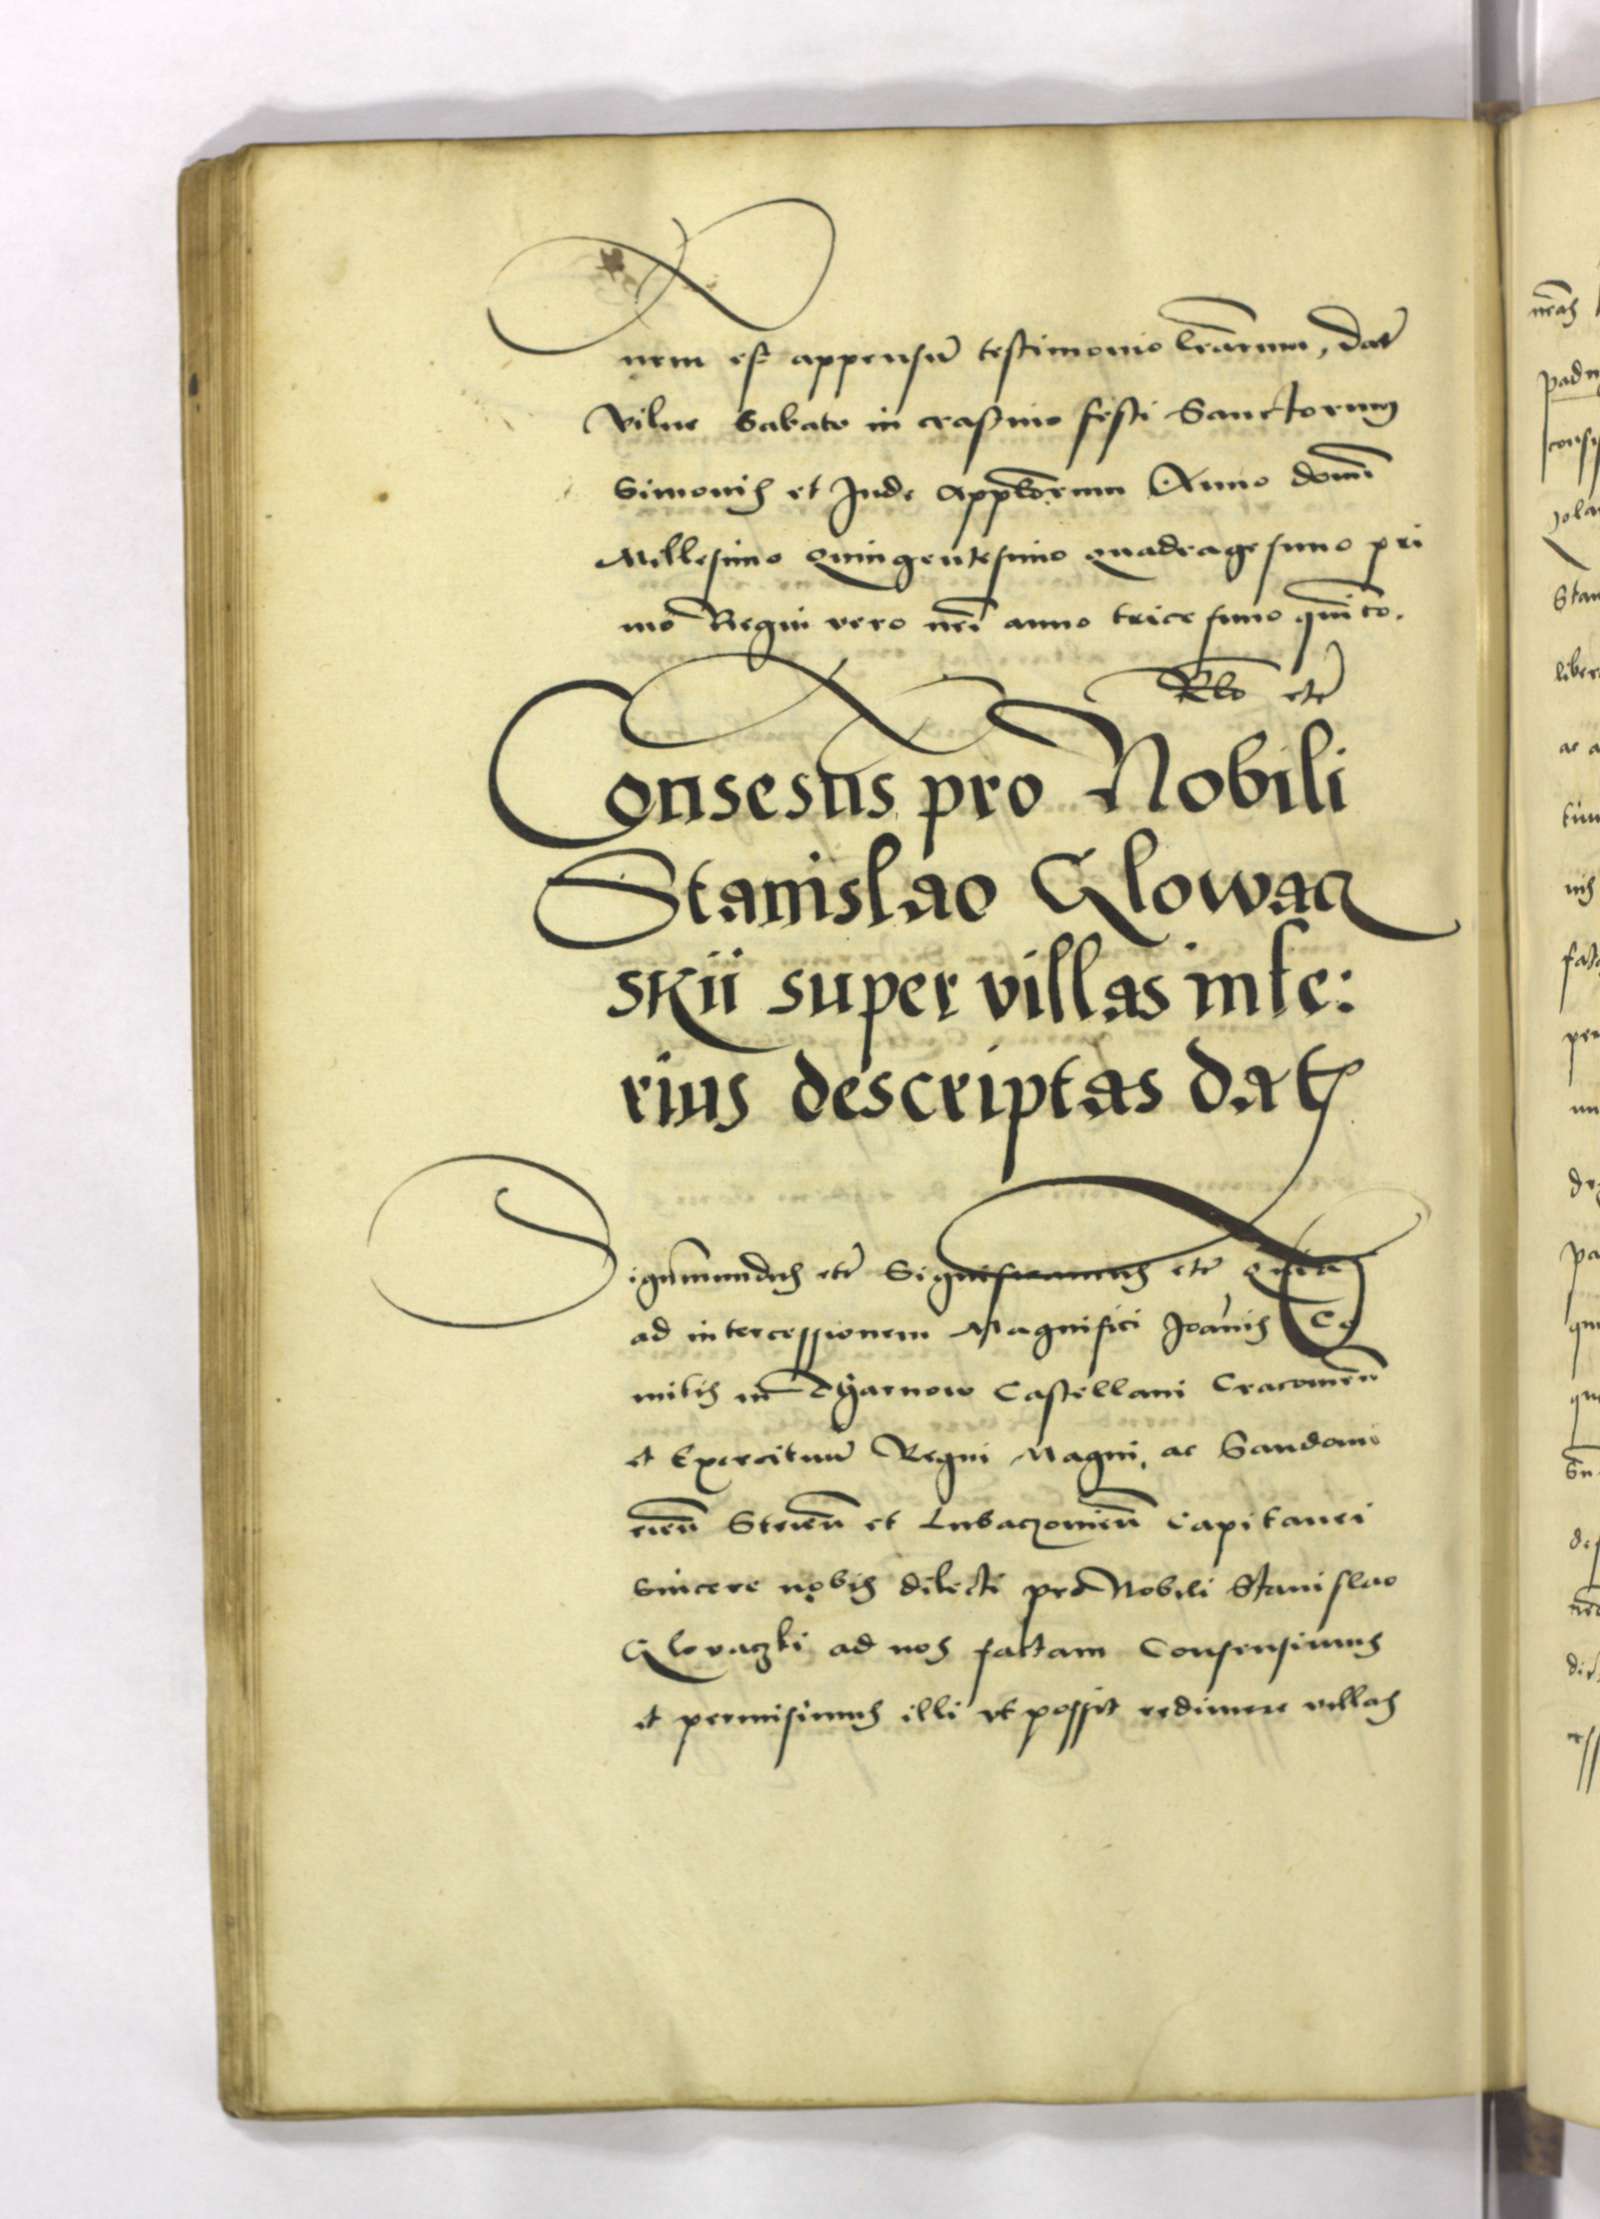 nem est appensũ testimonio lr̃arum, datt̃
Vilne Sabato in crastino festi Sanctorum
Simonis et Jude Appl̃orum Anno domĩ
Millesimo Quingentesimo quadragesimo pri
mo Regni vero nr̃i anno tricesimo quĩto.
Rl̃o etc̃
Consesus pro Nobili
Stanislao Glowacz
skii super villas infe:
rius descriptas datt̃
Sigismundus etc̃ Significamus etc̃ Quia
ad intercessionem Magnifici Joãnis Co
mitis in Tharnow Castellani Cracovien̄
et Exercituũ Regni Magni, ac Sandomi
rien̄ Strien̄ et Lubaczovien̄ Capitanei
sincere nobis dilecti pro Nobili Stanislao
Glovaczki ad nos factam Consensimus
et permisimus illi ut possit redimere villas